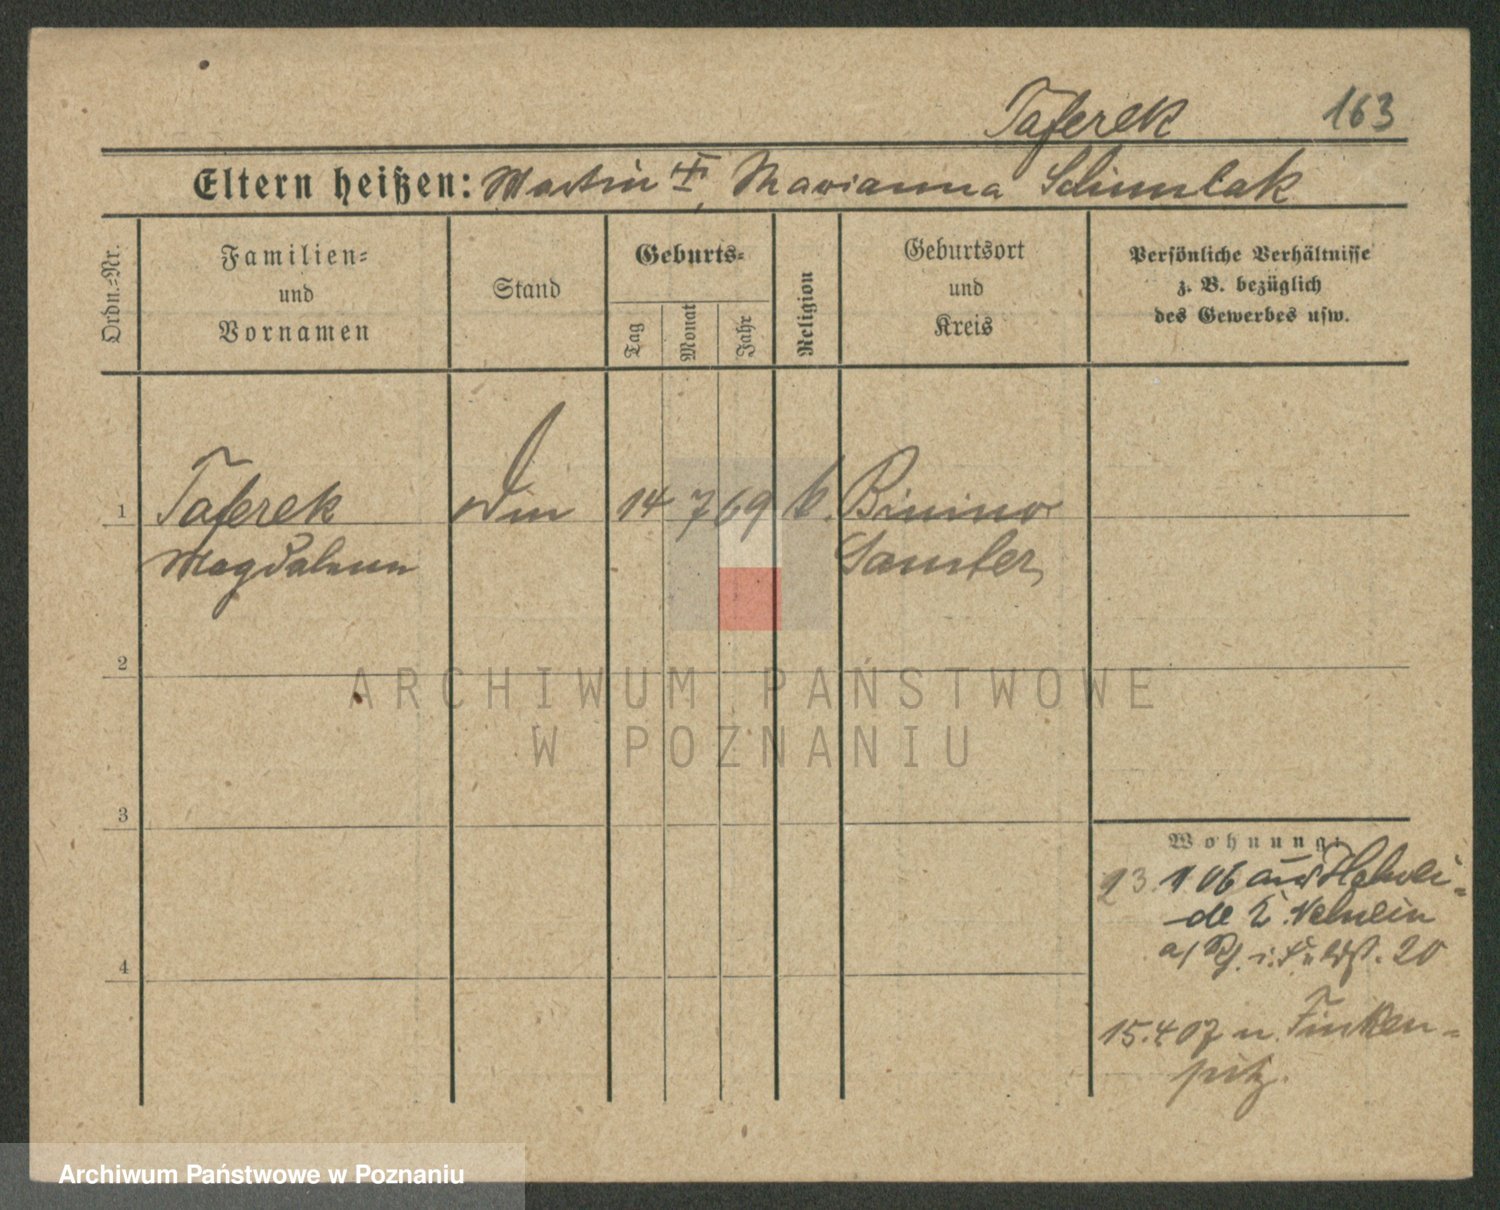 Taferek 163
Eltern heißen: Martin ✝, Marianna Schimlak
Ordn.-Nr.
Familien-
und
Vornamen
Stand
Geburts-
Tag
Monat
Jahr
Religion
Geburtsort
und
Kreis
Persönliche Verhältnisse
z. B. bezüglich
des Gewerbes usw.
1 Taferek 14 7 69 k. Binino
Magdalena Samter
2
ARCHIWUM PAŃSTWOWE
W POZNANIU
3
4
Wohnung:
23. 1 06 aus
20
15.4 07 n. Finken-
Archiwum Państwowe w Poznaniu